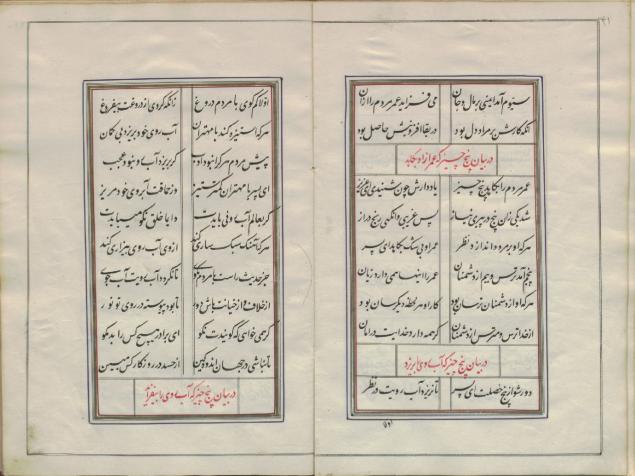 سیوم آمد ایمنی بر مال و جان می فزاید عمر مردم را ازان
آنکه کارش بر مراد دل بود در بقا افزونیش حاصل بود
در بیان پنج چیز که عمر ازاو بکاهد
عمر مردم را بکاهد پنج چیز یاد دارش چون شنیدی ای عزیز
شد یکی زان پنج در پیری نیاز پس غریبی وانگهی رنج دراز
هر که او بر مرده اندازد نظر عمر او بی شک بکاهد ای پسر
پنجم آمد ترس و بیم از دشمنان عمر را اینها همی دارد زیان
هر که او از دشمنان ترسان بود کار او هر لحظه دیگرسان بود
از خدا ترس و مترس از دشمنان کز همه دارد خدایت در امان
در بیان پنج چیز که آب روی بریزد
دور شو از پنج خصلت ای پسر تا نریزد آب رویت در نظر
اولا کم گوی با مردم دروغ زانکه گردی از دروغت بیفروغ
هر که استیزه کند با مهتران آب روی خود بریزد بی گمان
پیش مردم هر که را نبود ادب گر بریزد آب او نبود عجب
ای پسر با مهتران کم ستیز وز حماقت آبروی خود مریز
گر بعالم آب روی بایدت دایما خلق نکو میبایدت
هر که آهنگ سبکساری کند از وی آب روی بیزاری کند
جز حدیث راست با مردم مگوی تا نگردد آب رویت آب جوی
از خلاف و از خیانت باش دور تا بود پیوسته در روی تو نور
گر همی خواهی که گویندت نکو ای برادر هیچ کس را بد مگو
تا نباشی در جهان اندوهگین از حسد در روزگار کس مبین
در بیان پنج چیز که آب روی را بیفزاید